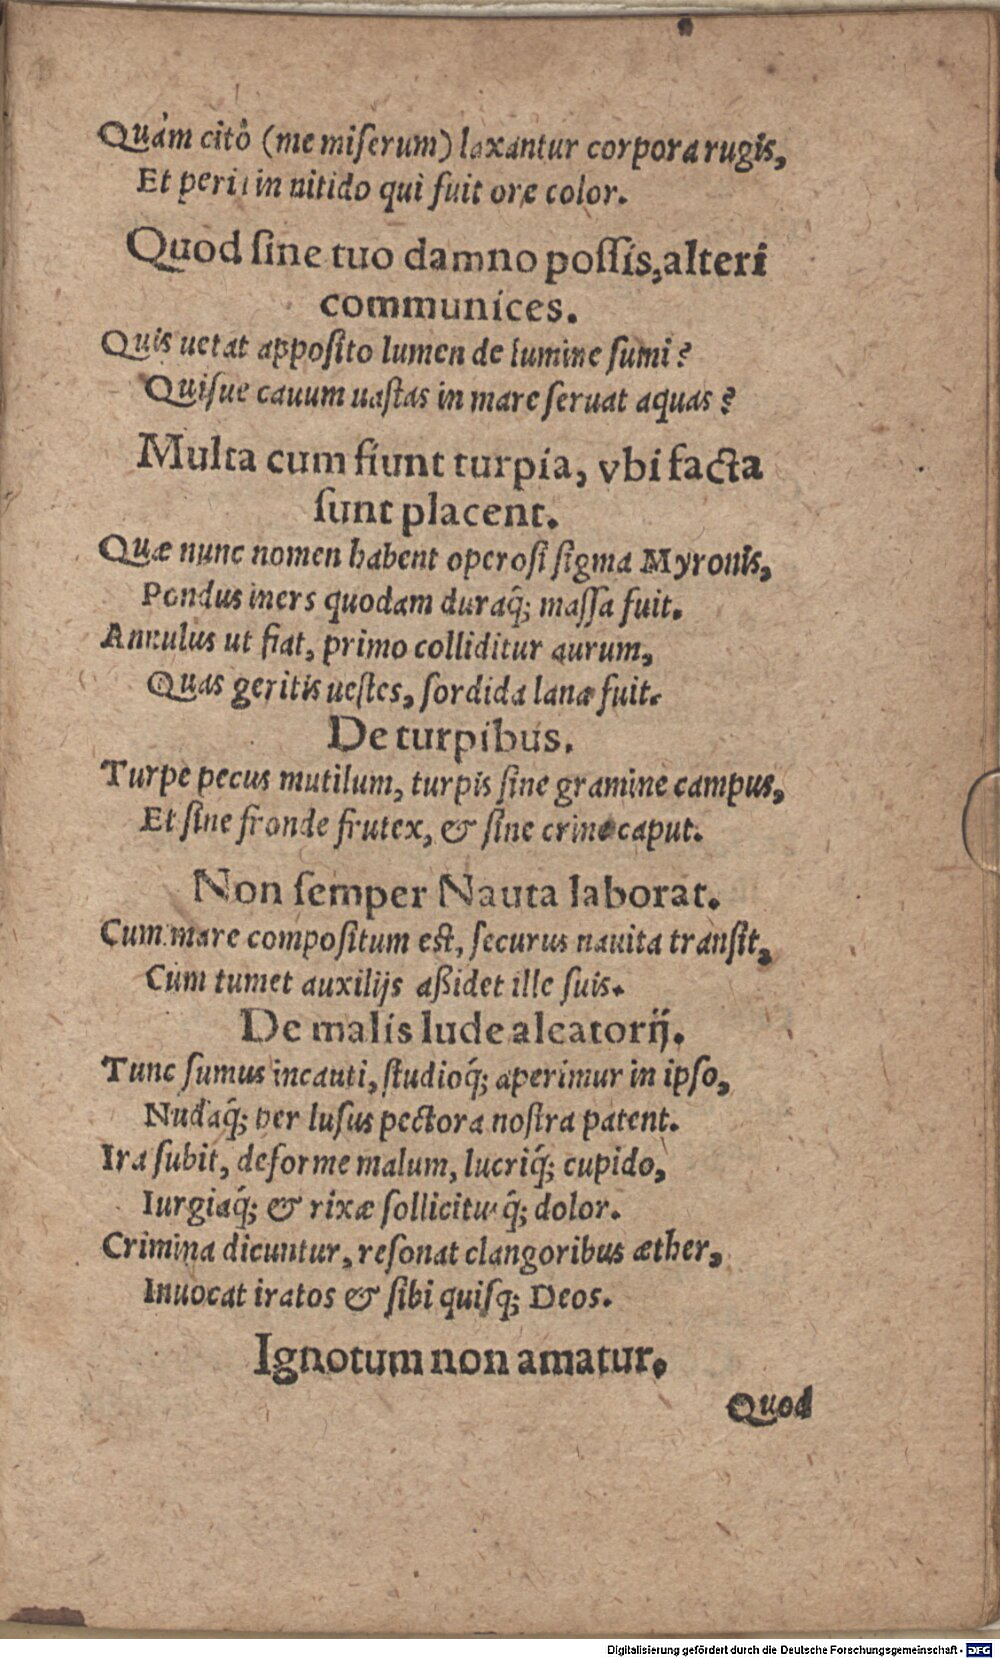 Quàm citò (me miſerum) laxantur corpora rugis,
Et perit in nitido qui fuit ore color.
Quod ſine tuo damno poſſis, alteri
communices.
Quis uetat appoſito lumen de lumine ſumi?
Quiſue cauum uaſtas in mare ſeruat aquas?
Multa cum fiunt turpia, vbi facta
ſunt placent.
Quæ nunc nomen habent operoſi ſigma Myronis,
Pondus iners quodam duraq́; maſſa fuit.
Annulus ut fiat, primo colliditur aurum,
Quas geritis ueſtes, ſordida lana fuit.
De turpibus.
Turpe pecus mutilum, turpis ſine gramine campus,
Et ſine fronde frutex, & ſine crine caput.
Non ſemper Nauta laborat.
Cum mare compoſitum eſt, ſecurus nauita tranſit,
Cùm tumet auxilijs aßidet ille ſuis.
De malis lude aleatorij.
Tunc ſumus incauti, ſtudioq́; aperimur in ipſo,
Nudaq́; per luſus pectora noſtra patent.
Ira ſubit, deforme malum, lucriq́; cupido,
Iurgiaq́; & rixæ ſollicituſq́; dolor.
Crimina dicuntur, reſonat clangoribus æther,
Inuocat iratos & ſibi quiſq; Deos.
Ignotum non amatur.
Quod
Digitalisierung gefördert durch die Deutsche Forschungsgemeinschaft - DFG